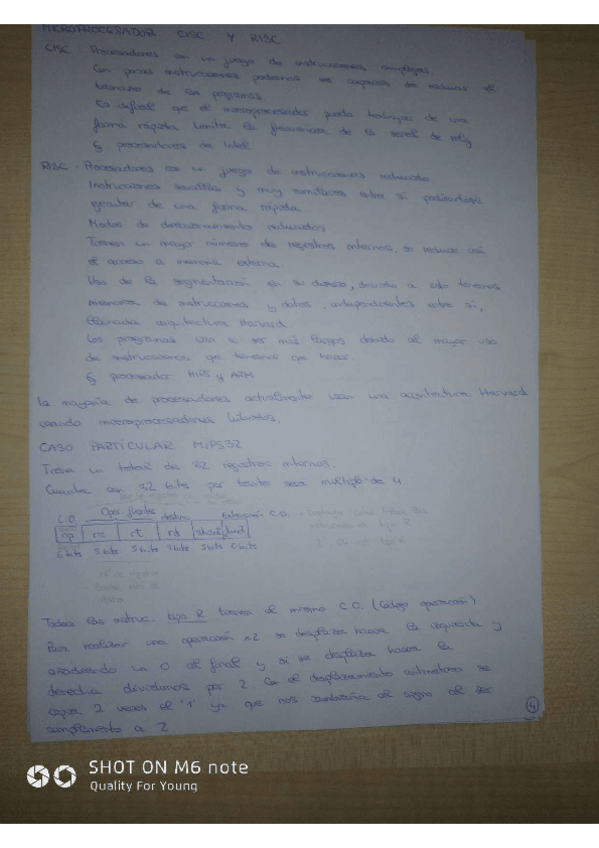 MICROPROCESADOR CISC Y RISC
CISC - Procesadores con un juego de instrucciones complejas.
Con pocas instrucciones podemos ser capaces de reducir el
tamaño de los programas
Es difícil que el microprocesador pueda trabajar de una
forma rápida. Limita la frecuencia de la señal de reloj
Ej procesadores de Intel
RISC - Procesadores con un juego de instrucciones reducido
Instrucciones sencillas y muy similares entre si
ejecutar de una forma rápida
Modos de direccionamiento reducidos
Tienen un mayor número de registros internos, se reduce así
el acceso a memoria externa.
Uso de la segmentación en su diseño, debido a esto tenemos
memoria de instrucciones y datos, independientes entre si,
llamada arquitectura Harvard.
Los programas van a ser más largos debido al mayor uso
de instrucciones que tenemos que hacer.
Ej procesador MIPS y ARM
La mayoría de procesadores actualmente usan una arquitectura Harvard
usando microprocesadores híbridos.
CASO PARTICULAR MIPS32
Tiene un total de 32 registros internos.
Cuenta con 32 bits por tanto será multiplo de 4.
C.O. Oper. fuentes destino Extensión C.O.
op rs rt rd shamt funct
6 bits 5 bits 5 bits 5 bits 5 bits 6 bits
Todas las instruc. tipo R tienen el mismo C.O. (Código operación)
Para realizar una operación x2 se desplaza hacia la izquierda y
añadiendo un 0 al final y si se desplaza hacia la
derecha dividimos por 2. Con el desplazamiento aritmético se
copia 2 veces el '1' ya que nos cambiaría el signo al ser
complemento a 2
4
SHOT ON M6 note
Quality For Young